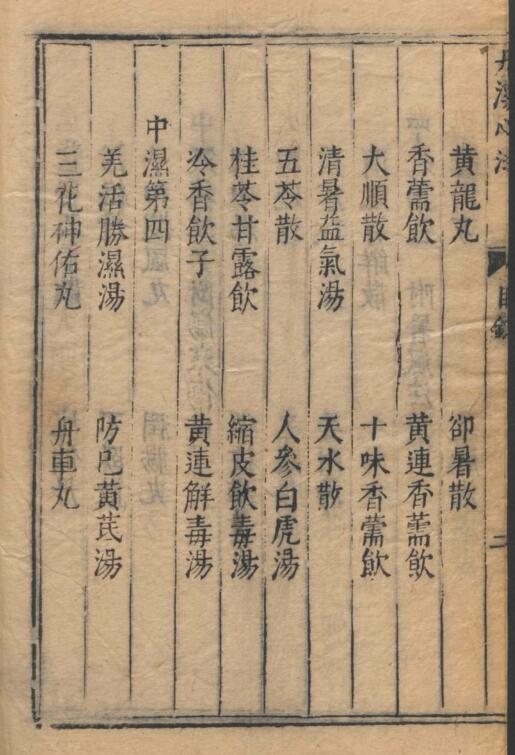 丹溪心法 目錄 二
黄龍丸 卻暑散
香薷飲 黄連香薷飲
大順散 十味香薷飲
清暑益氣湯 天水散
五苓散 人參白虎湯
桂苓甘露飲 縮皮飲毒湯
冷香飲子 黄連解毒湯
中濕第四
羌活勝濕湯 防已黄芪湯
三花神佑丸 舟車丸